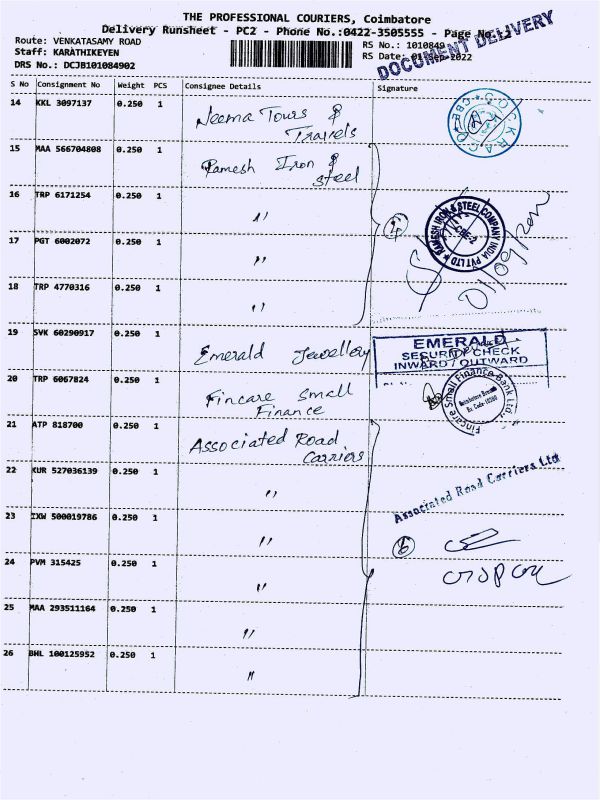 THE PROFESSIONAL COURIERS, Coimbatore
Delivery Runsheet - PC2 - Phone No.:0422-3505555 - Page No.:2
DOCUMENT DELIVERY
Route: VENKATASAMY ROAD RS No.: 1010849
Staff: KARATHIKEYEN RS Date: 01-Sep-2022
DRS No.: DCJB101084902
S No Consignment No Weight PCS Consignee Details Signature
14 KKL 3097137 0.250 1 Neema Tours &
Travels
15 MAA 566704808 0.250 1 Ramesh Iron &
steel
16 TRP 6171254 0.250 1 "
4
RAMESH IRON & STEEL COMPANY INDIA PVT LTD
CBE-2
17 PGT 6002072 0.250 1 "
18 TRP 4770316 0.250 1 "
19 SVK 60290917 0.250 1 Emerald Jewellery
EMERALD
SECURITY CHECK
INWARD / OUTWARD
20 TRP 6067824 0.250 1 Fincare Small
Finance
Fincare Small Finance Bank Ltd.
21 ATP 818700 0.250 1 Associated Road
Carriers
22 KUR 527036139 0.250 1 "
Associated Road Carriers Ltd
23 IXW 500019786 0.250 1 "
6
24 PVM 315425 0.250 1 "
25 MAA 293511164 0.250 1 "
26 BHL 100125952 0.250 1 "